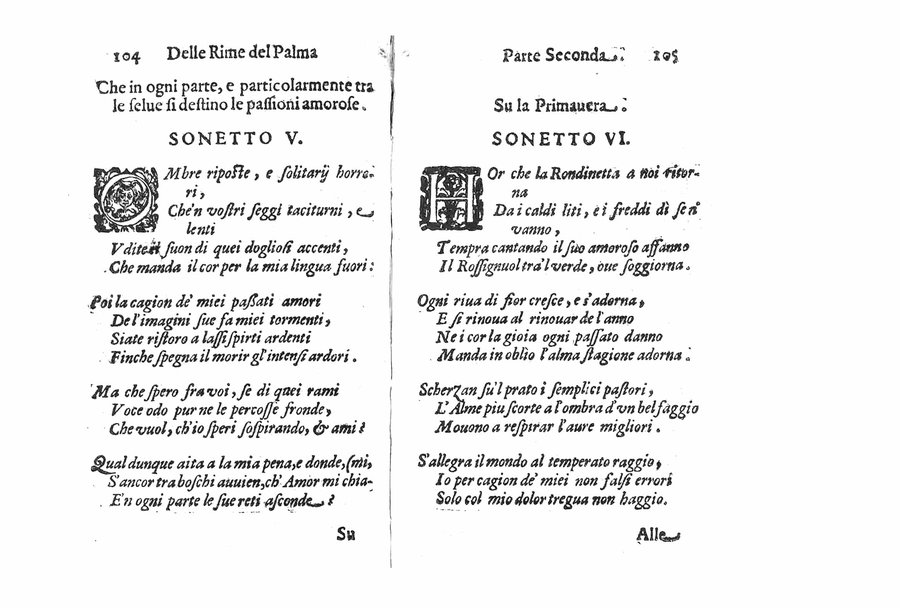 104 Delle Rime del Palma
Che in ogni parte, e particolarmente tra
le ſelue ſi deſtino le paſſioni amoroſe.
SONETTO V.
OMbre ripoſte, e ſolitarij horro-
ri,
Che'n voſtri ſeggi taciturni, e
lenti
Vdite il ſuon di quei doglioſi accenti,
Che manda il cor per la mia lingua fuori:
Poi la cagion de' miei paſſati amori
De l'imagini ſue fa miei tormenti,
Siate riſtoro a laſſi ſpirti ardenti
Finche ſpegna il morir gl'intenſi ardori.
Ma che ſpero fra voi, ſe di quei rami
Voce odo pur ne le percoſſe fronde,
Che vuol, ch'io ſperi ſoſpirando, & ami?
Qual dunque aita a la mia pena, e donde, (mi,
S'ancor tra boſchi auuien, ch'Amor mi chia-
E'n ogni parte le ſue reti aſconde?
Su
Parte Seconda. 105
Su la Primauera.
SONETTO VI.
HOr che la Rondinetta a noi ritor-
na
Da i caldi liti, e i freddi dì ſe n'
vanno,
Tempra cantando il ſuo amoroſo affanno
Il Roſſignuol tra'l verde, oue ſoggiorna.
Ogni riua di fior creſce, e s'adorna,
E ſi rinoua al rinouar de l'anno
Ne i cor la gioia ogni paſſato danno
Manda in oblio l'alma ſtagione adorna.
Scherzan ſu'l prato i ſemplici paſtori,
L'Alme piu ſcorte a l'ombra d'vn bel faggio
Mouono a reſpirar l'aure migliori.
S'allegra il mondo al temperato raggio,
Io per cagion de' miei non falſi errori
Solo col mio dolor tregua non haggio.
Alle